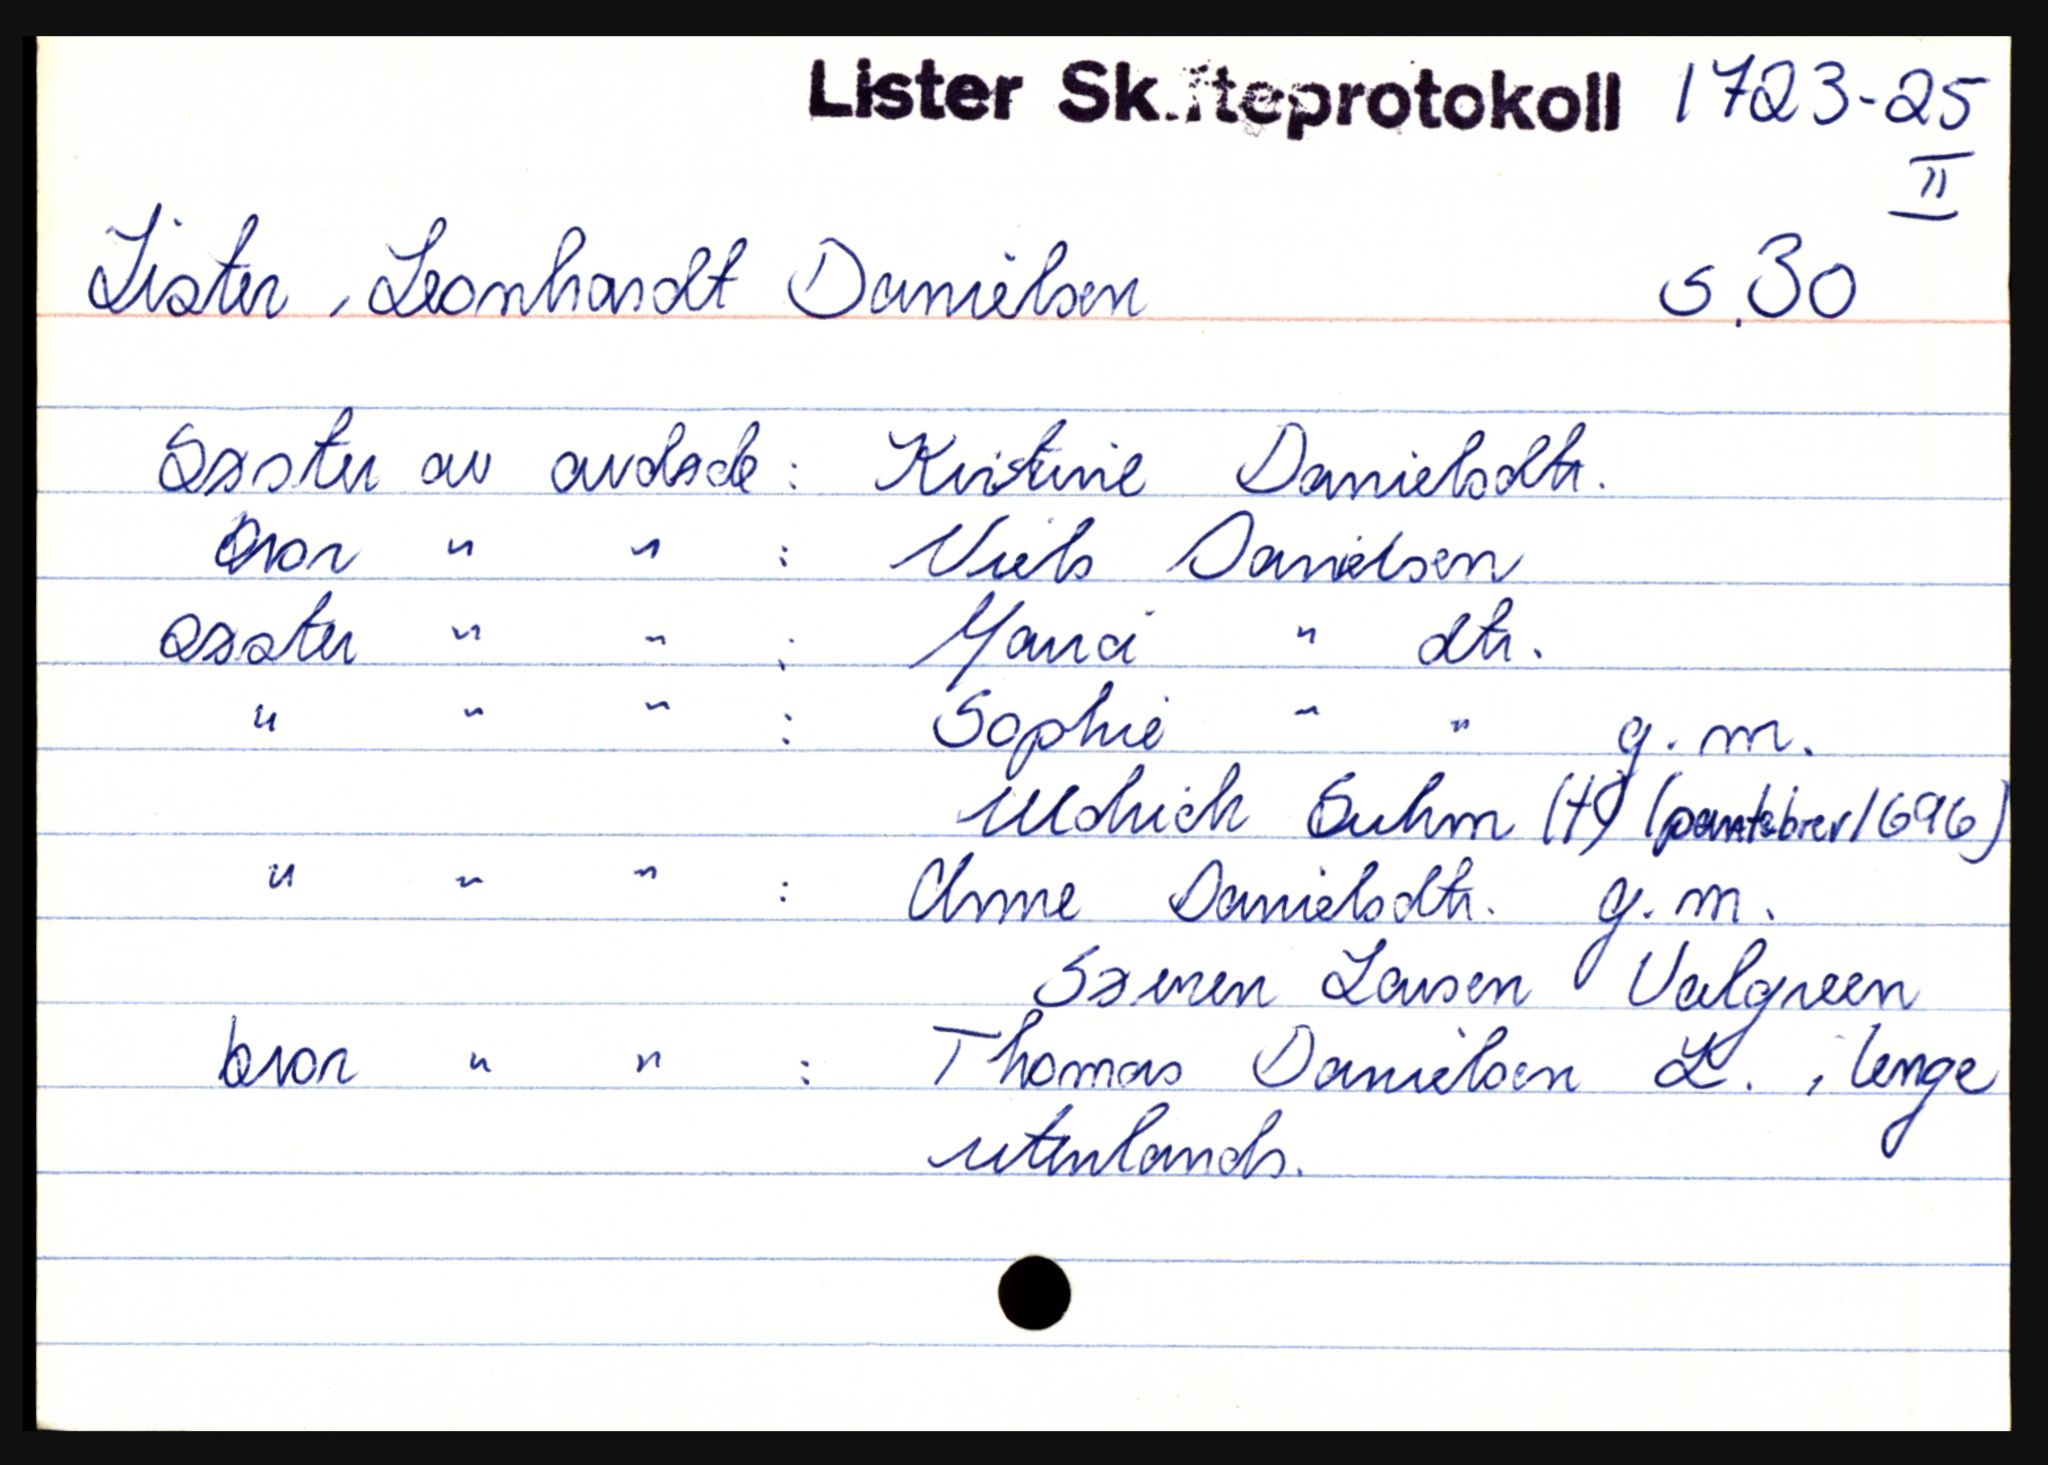 Lister Skifteprotokoll 1723-25
II
Lister, Leonhardt Danielsen s. 30
Søster av avdøde : Kristine Danielsdtr.
bror " " : Niels Danielsen
søster " " : Marci " dtr.
" " " : Sophie " " g. m.
Uldrich Suhm (†) (pantebrev 1696)
" " " : Anne Danielsdtr. g. m.
Søeren Lausen Valgreen
bror " " : Thomas Danielsen L. , lenge
utenlands.